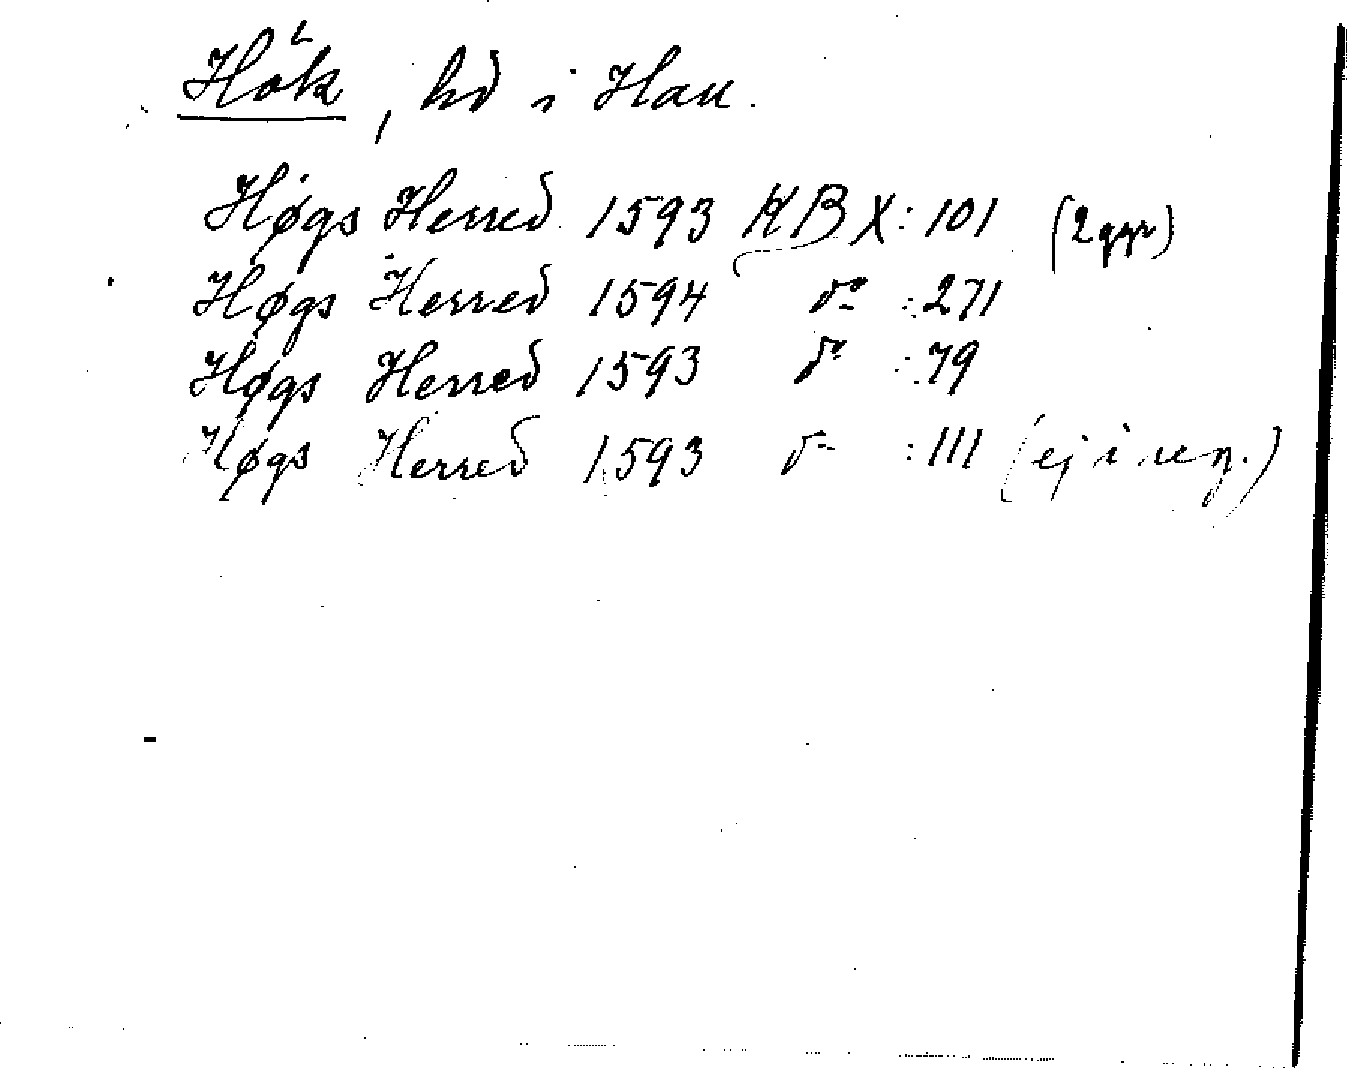 Hök, hd i Hall.
Høgs Herred 1593 KB X: 101 (2 ggr)
Høgs Herred 1594 do : 271
Høgs Herred 1593 do : 79
Høgs Herred 1593 do : 111 (ej i reg.)